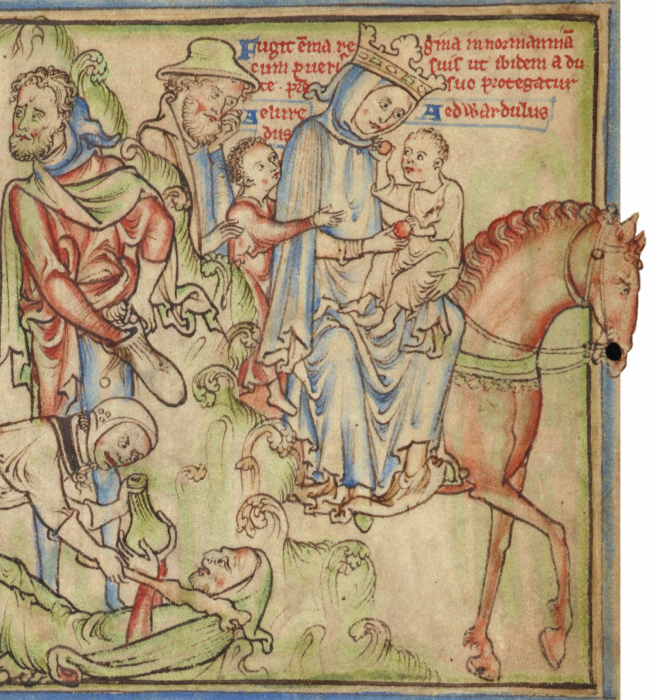 Fugit ēma regina in normanniā
cum pueris suis ut ibidem a du
ce · pr̄e suo protegatur
Aelure
dus
Aedwardulus